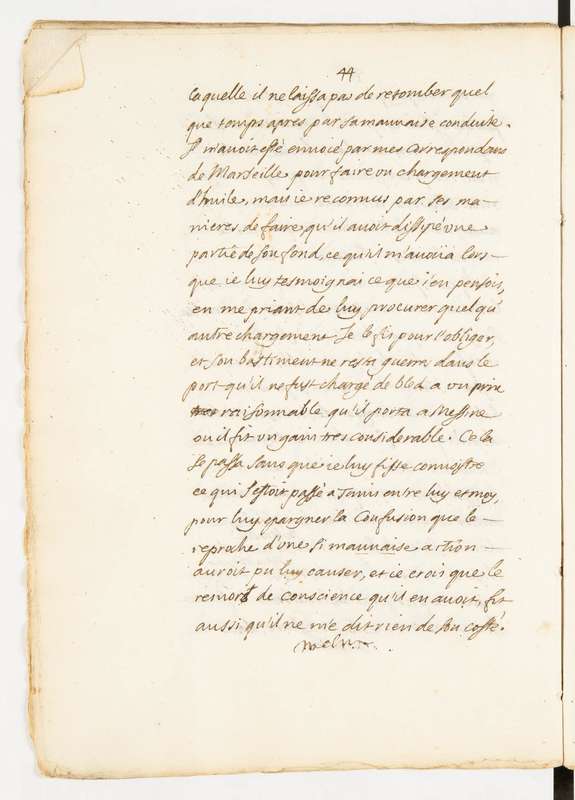 44
laquelle il ne laissa pas de retomber quel
que temps apres par sa mauuaise conduite.
Il m'auoit esté enuoié par mes Correspondans
de Marseille pour faire vn chargement
d'huile, mais ie reconnus par ses ma-
nieres de faire qu'il auoit dissipé vne
partie de son fond, ce qu'il m'auoüa lors-
que ie luy tesmoignai ce que i'en pensois,
en me priant de luy procurer quelqu'
autre chargement. Je le fis pour l'obliger,
et son bastiment ne resta guerre dans le
port qu'il ne fust chargé de bled a vn prix
raisonnable qu'il porta a Messine
ou il fit vn gain tres considerable. Cela
se passa sans que ie luy fisse connoistre
ce qui s'estoit passé a Tunis entre luy et moy,
pour luy epargner la Confusion que le
reproche d'une si mauuaise action
auroit pu luy causer, et ie crois que le
remors de conscience qu'il en auoit, fit
aussi qu'il ne m'e dit rien de son costé.